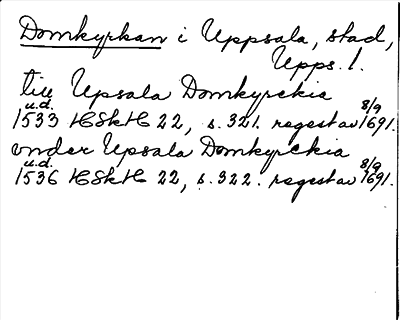 Domkyrkan i Uppsala, stad,
Upps. l.
till Upsala Domkyrckia
u.d. 8/9
1533 HSkH 22, s. 321. regest av 1691.
vnder Upsala Domkyrckia
u.d. 8/9
1536 HSkH 22, s. 322. regest av 1691.